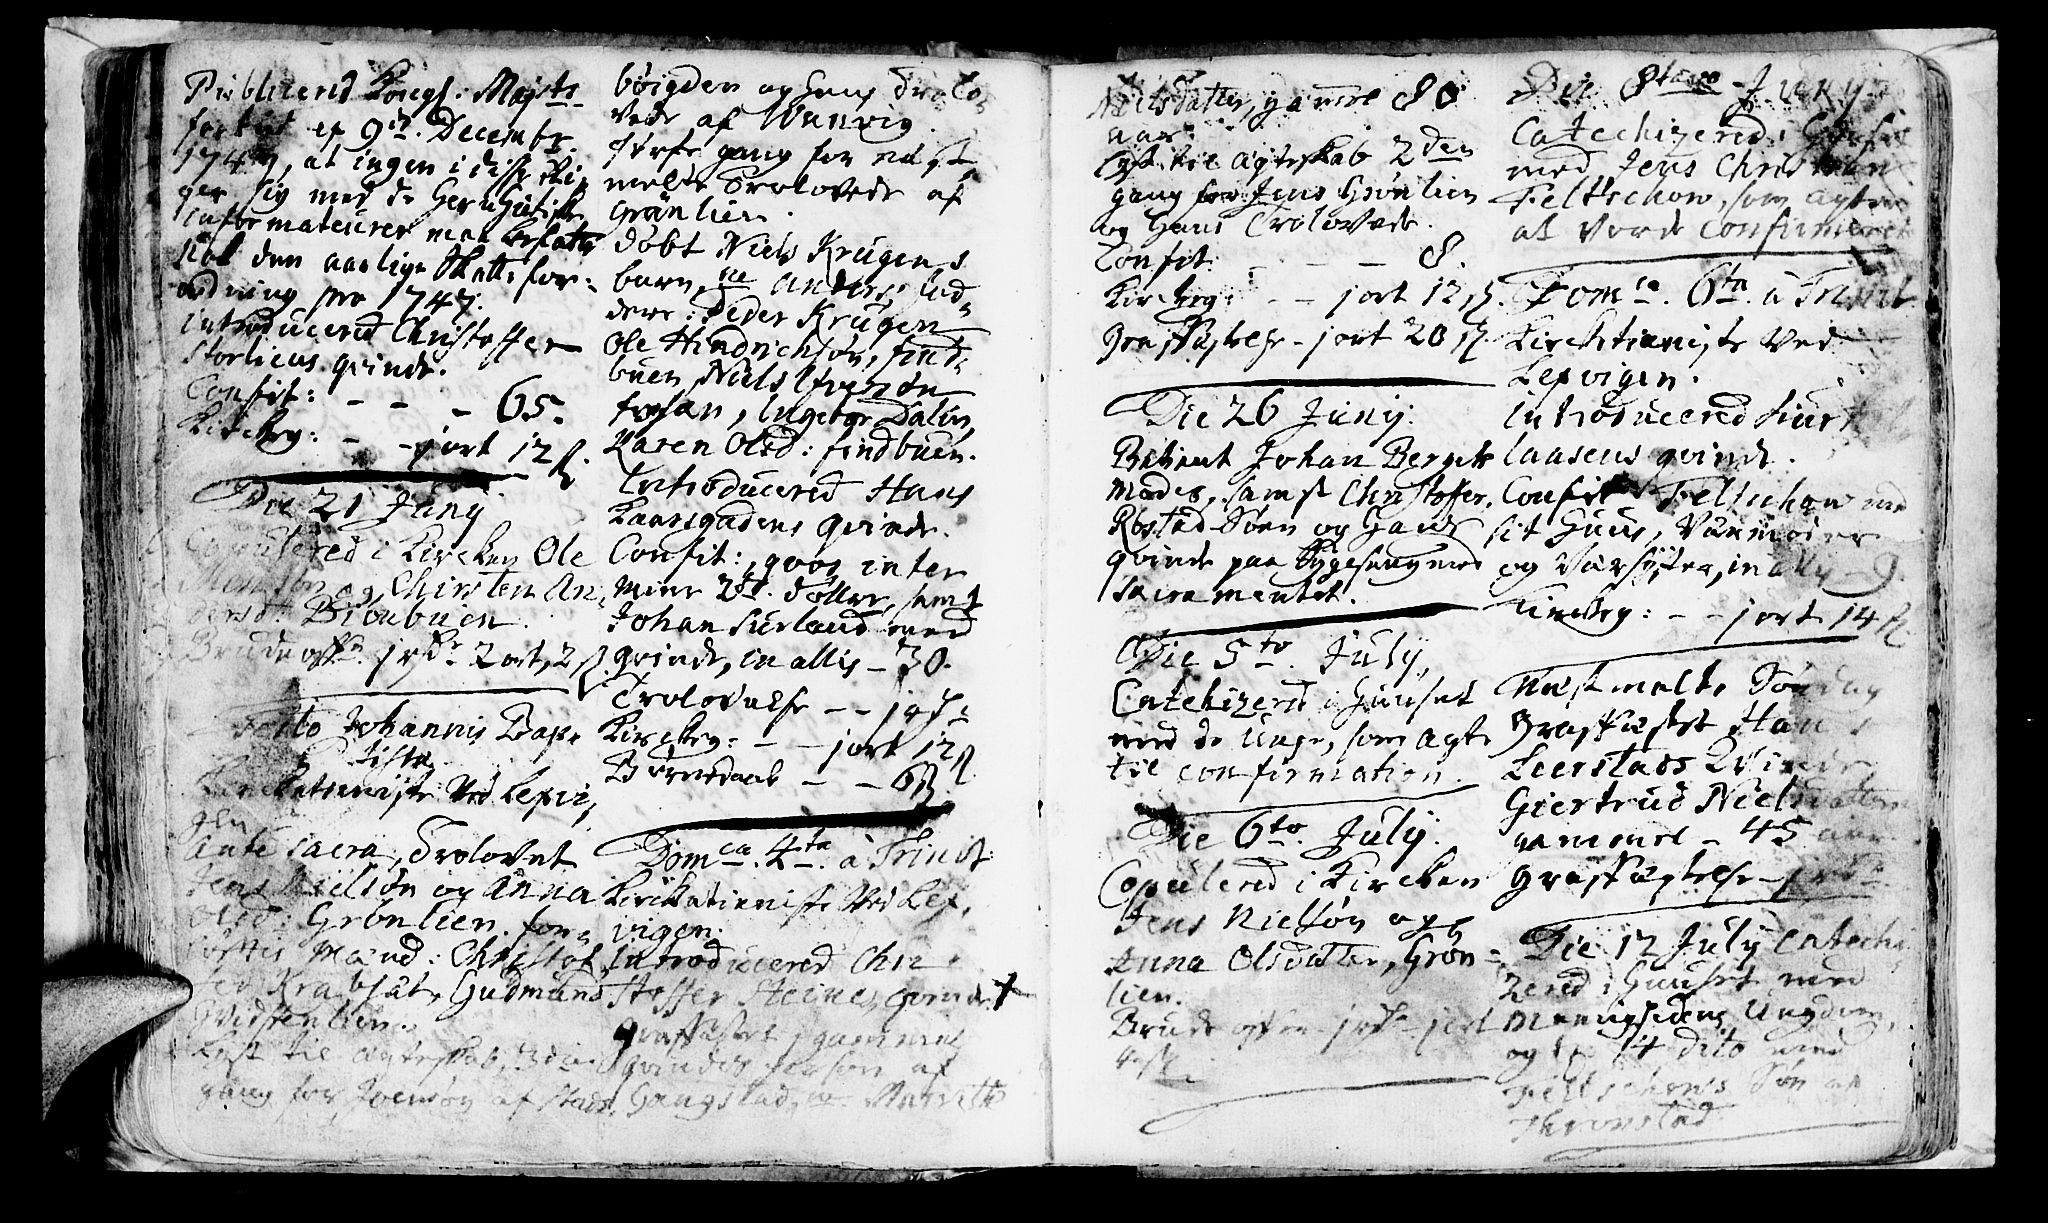 Publicered Kongl: Mayts
forbud af 9de Decembr.
174, at ingen i disse Ri,
ger sig med de Hernhutiske
informateurer maa befatte
Nok den aarlige Skatte for:
ordning pro 1747.
introducered Christoffer
Storliens qvinde.
Confit: - - - 65.
Kircheg: - - jort 12 s.
Die 21 Juny
Copulered i Kircken Ole
og Chirsten An,
dersd: Bioubuen.
Brude off. jrdr 2 ort, 2 s.
Festo Johannis Bap,
tista
Kirchetieniste Ved Lexvi,
gen
Ante sacra, Trolovet
Jens Nielsøn og Anna
Olsd: Grønlien. for,
løftis Mænd: Christof,
fer Krabsæt, Gudmund
Qvistenlien.
Lyst til Ægteskab, 3die
gang for Joensøn af Stads,
bøigden og hans Trolo,
vede af Wanvig.
første gang for næst
meldte Trolovede af
Grønlien.
døbt Niels Krugens
barn, n Anders; fad,
dere: Peder Krugen
Ole Hindrichsøn, find,
buen, Niels Iversøn
Trøjan, Ingebor Dalen,
Karen Olsd: findbuen.
Introducered Hans
Kaarsgadens qvinde.
Confit: qvos inter
mine 2de døttre, samt
Johan Surland med
qvinde, in allis - 30.
Trolovelse - - j
Kircheg: - - jort 12 s
Børnedaab - - 6 s
Domca. 4ta. à Trinit:
Kirchetieniste Ved Lex,
vigen.
Introducered Chri
stoffer Steines qvinde. +
Græskastet, j gammel
qvindes person af
Hangstad, n. Marrithe
Nilsdatter, gammel 80
aar.
Lyst til ægteskab 2den
gang for Jens Grønlien
og hans Trolovede.
Confit: - - - 8.
Kircheg: - - jort 12 s.
Græskastelse - jort 20 s.
Die 26 Juny:
Betient Johan Bergets
Moder, samt Christoffer,
Røstad Søn og hans
qvinde paa Sygeseng med
Sacramentet.
Die 5to. July,
Catechizered i Huuset
med de Unge, som agte
til confirmation.
Die 6to. July.
Copulered i Kircken
Jens Nielsøn og
Anna Olsdatter, Grøn,
lien.
Brude offer jrdr jort
4 s.
Die 8tavo July
Catechizered i Huuset
med Jens Christian
Feltschow, som agter
at Vorde Confirmeret
Domca. 6ta. à Trinit
Kirchetieniste Ved
Lexvigen.
introducered Siur
Laasens qvinde.
Confit Feltschow med
sit Huus, Værmoder
og Værsyster, in all - 9.
Kircheg: - - jort 14 s.
Næstmeldte Søndag
Græskastet Hans
Leerstads Qvinde
Giertrud Nielsdatter
gammel - 45 aar
Græskastelse - jrdr
Die 12 July Catechi
zered i Huuset med
Meenighedens Ungdom,
og d 14 dito med
Feltschows Søn at
Thronstad